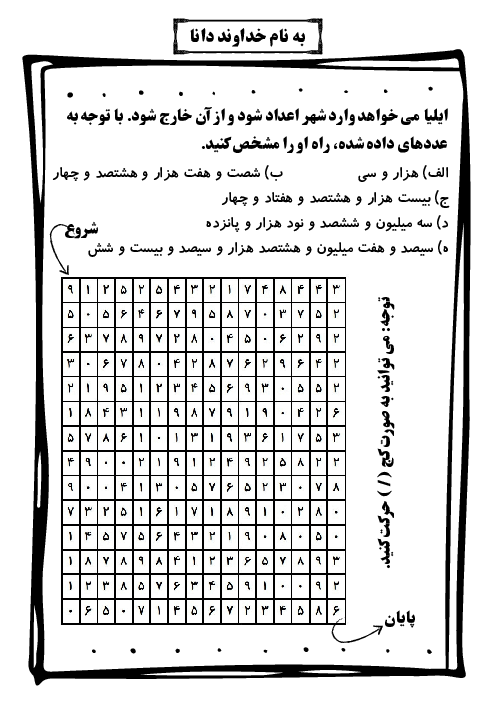 به نام خداوند دانا
ایلیا می خواهد وارد شهر اعداد شود و از آن خارج شود. با توجه به
عددهای داده شده، راه او را مشخص کنید.
الف) هزار و سی ب) شصت و هفت هزار و هشتصد و چهار
ج) بیست هزار و هشتصد و هفتاد و چهار
د) سه میلیون و ششصد و نود هزار و پانزده
ه) سیصد و هفت میلیون و هشتصد هزار و سیصد و بیست و شش
شروع
۹ ۱ ۲ ۵ ۲ ۵ ۴ ۳ ۲ ۱ ۷ ۴ ۸ ۴ ۴ ۳
۵ ۰ ۵ ۶ ۴ ۶ ۷ ۹ ۵ ۸ ۷ ۰ ۳ ۷ ۵ ۲
۶ ۳ ۷ ۸ ۹ ۷ ۲ ۸ ۰ ۴ ۵ ۰ ۶ ۲ ۹ ۲
۳ ۰ ۶ ۷ ۸ ۰ ۴ ۲ ۸ ۷ ۶ ۲ ۹ ۶ ۴ ۲
۲ ۱ ۹ ۵ ۱ ۲ ۳ ۴ ۵ ۶ ۹ ۳ ۰ ۵ ۵ ۲
۱ ۸ ۴ ۳ ۱ ۱ ۹ ۸ ۷ ۹ ۱ ۹ ۰ ۴ ۲ ۶
۵ ۷ ۸ ۶ ۱ ۰ ۱ ۳ ۱ ۹ ۳ ۶ ۱ ۷ ۵ ۳
۴ ۹ ۰ ۰ ۲ ۱ ۹ ۱ ۲ ۴ ۹ ۲ ۵ ۸ ۲ ۲
۹ ۰ ۰ ۴ ۱ ۳ ۰ ۵ ۷ ۶ ۵ ۲ ۳ ۰ ۷ ۸
۷ ۳ ۲ ۵ ۱ ۶ ۱ ۷ ۱ ۸ ۹ ۱ ۰ ۲ ۸ ۰
۱ ۴ ۵ ۷ ۵ ۶ ۴ ۳ ۲ ۱ ۹ ۰ ۸ ۰ ۵ ۰
۱ ۸ ۷ ۸ ۹ ۸ ۴ ۱ ۲ ۳ ۶ ۵ ۷ ۸ ۹ ۳
۱ ۲ ۳ ۸ ۵ ۷ ۶ ۳ ۴ ۵ ۹ ۱ ۰ ۰ ۹ ۲
۰ ۶ ۵ ۰ ۷ ۱ ۴ ۵ ۶ ۷ ۲ ۳ ۴ ۵ ۸ ۶
توجه: می توانید به صورت کج (/) حرکت کنید.
پایان